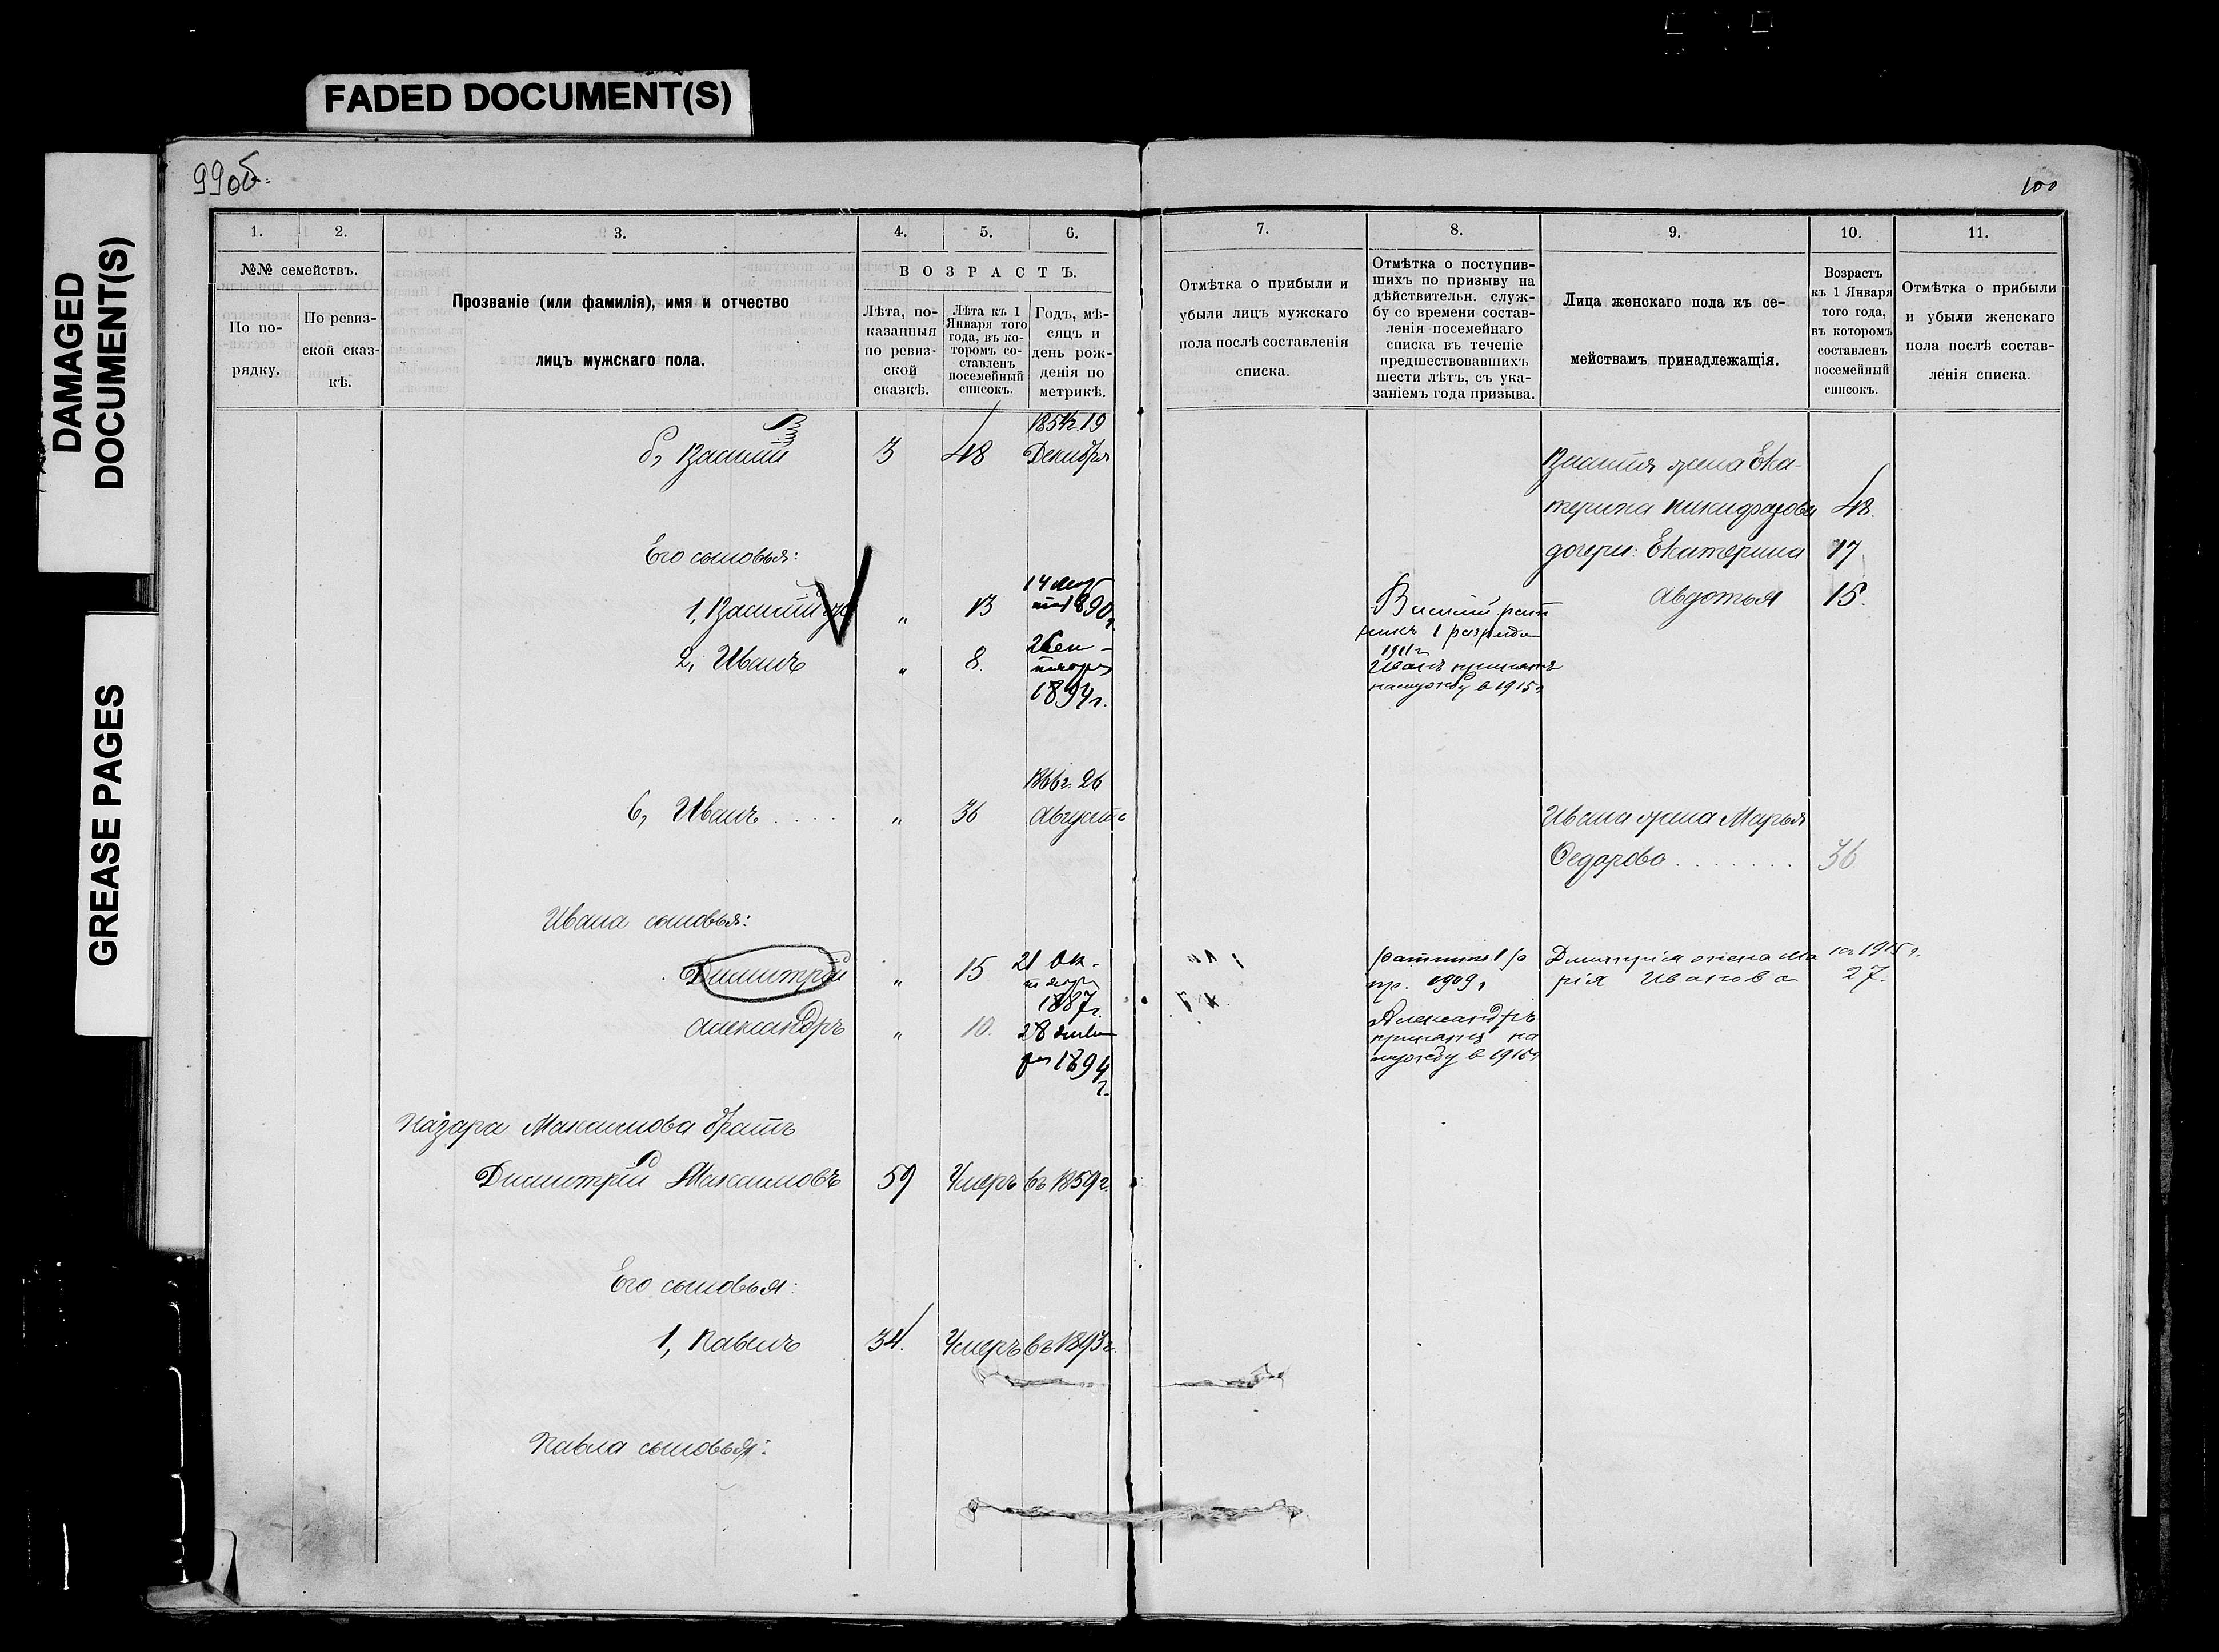 FADED DOCUMENT(S)
DAMAGED
DOCUMENT(S)
GREASE PAGES
99об.
100
1. 2. 3. 4. 5. 6. 7. 8. 9. 10. 11.
№№ семействъ.
По по-
рядку.
По ревиз-
ской сказ-
кѣ.
Прозваніе (или фамилія), имя и отчество
лицъ мужскаго пола.
ВОЗРАСТЪ.
Лѣта, по-
казанныя
по ревиз-
ской
сказкѣ.
Лѣта къ 1
Января того
года, въ ко-
торомъ со-
ставленъ
посемейный
списокъ.
Годъ, мѣ-
сяцъ и
день рож-
денія по
метрикѣ.
Отмѣтка о прибыли и
убыли лицъ мужскаго
пола послѣ составленія
списка.
Отмѣтка о поступив-
шихъ по призыву на
дѣйствительн. служ-
бу со времени состав-
ленія посемейнаго
списка въ теченіе
предшествовавшихъ
шести лѣтъ, съ ука-
заніемъ года призыва.
Лица женскаго пола къ се-
мействамъ принадлежащія.
Возрастъ
къ 1 Января
того года,
въ которомъ
составленъ
посемейный
списокъ.
Отмѣтка о прибыли
и убыли женскаго
пола послѣ состав-
ленія списка.
1854г. 19
Василій 3 48 Декабря
Василія жена Ека-
терина Никифорова 48.
Его сыновья:
дочери: Екатерина 17
Авдотья 15.
1, Василій „ 13 1890г.
Василій рат
никъ 1 разряда
1911г
2, Иванъ „ 8. 1894г.
Иванъ принятъ
на службу в 1915г
1866г. 26
6, Иванъ .... „ 36 Августа
Ивана жена Марья
Ѳедорова ....... 36
Ивана сыновья:
Димитрій „ 15 21 Ок-
1887г.
ратник 1 р
пр. 1909г
Дмитрія жена Ма
рія Иванова
на 1915г.
27.
Александръ „ 10. 28
1894
г.
Александръ
принятъ на
службу в 1915г
Назара Максимова братъ
Димитрій Максимовъ 59 Умеръ въ 1859г.
Его сыновья:
1, Павелъ 34. Умеръ въ 1893г.
Павла сыновья: